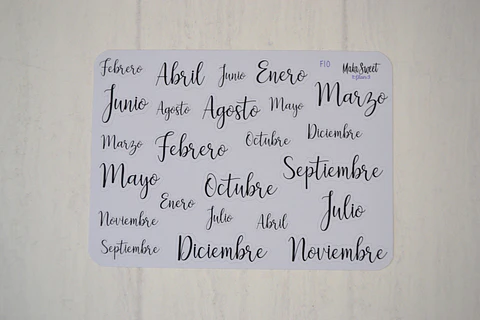 Febrero Abril Junio Enero F10 Maka Sweet
Junio Agosto Agosto Mayo Marzo
Marzo Febrero Octubre Diciembre
Mayo Octubre Septiembre
Enero
Noviembre Julio Abril Julio
Septiembre Diciembre Noviembre